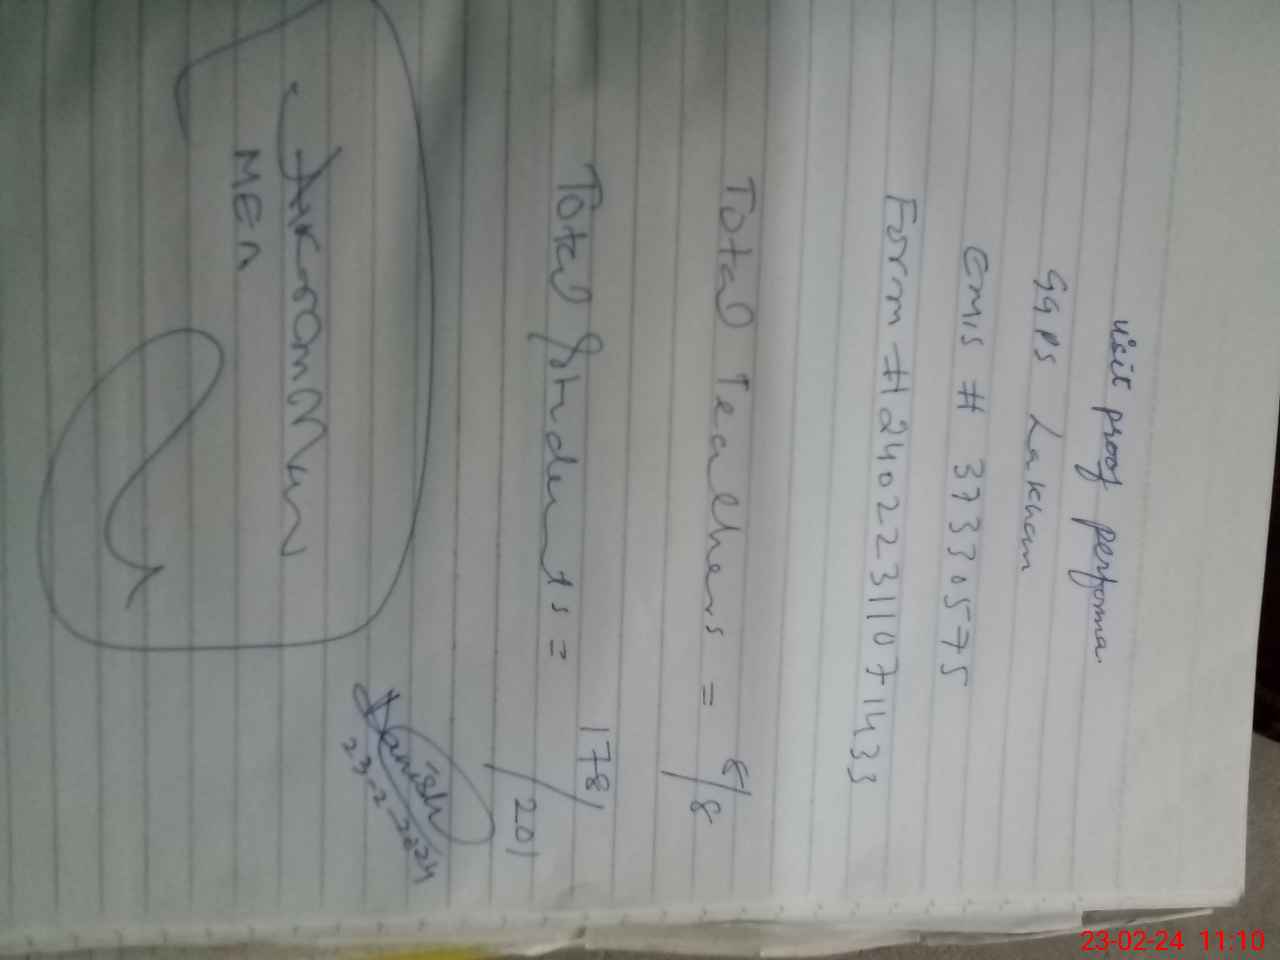 visit proof performa
GGPS Lakham
EMIS # 37330575
Form # 24022311071433
Total Teachers = 8/8
Total Students = 178/201
Danish
23-2-2024
MEA
23-02-24 11:10